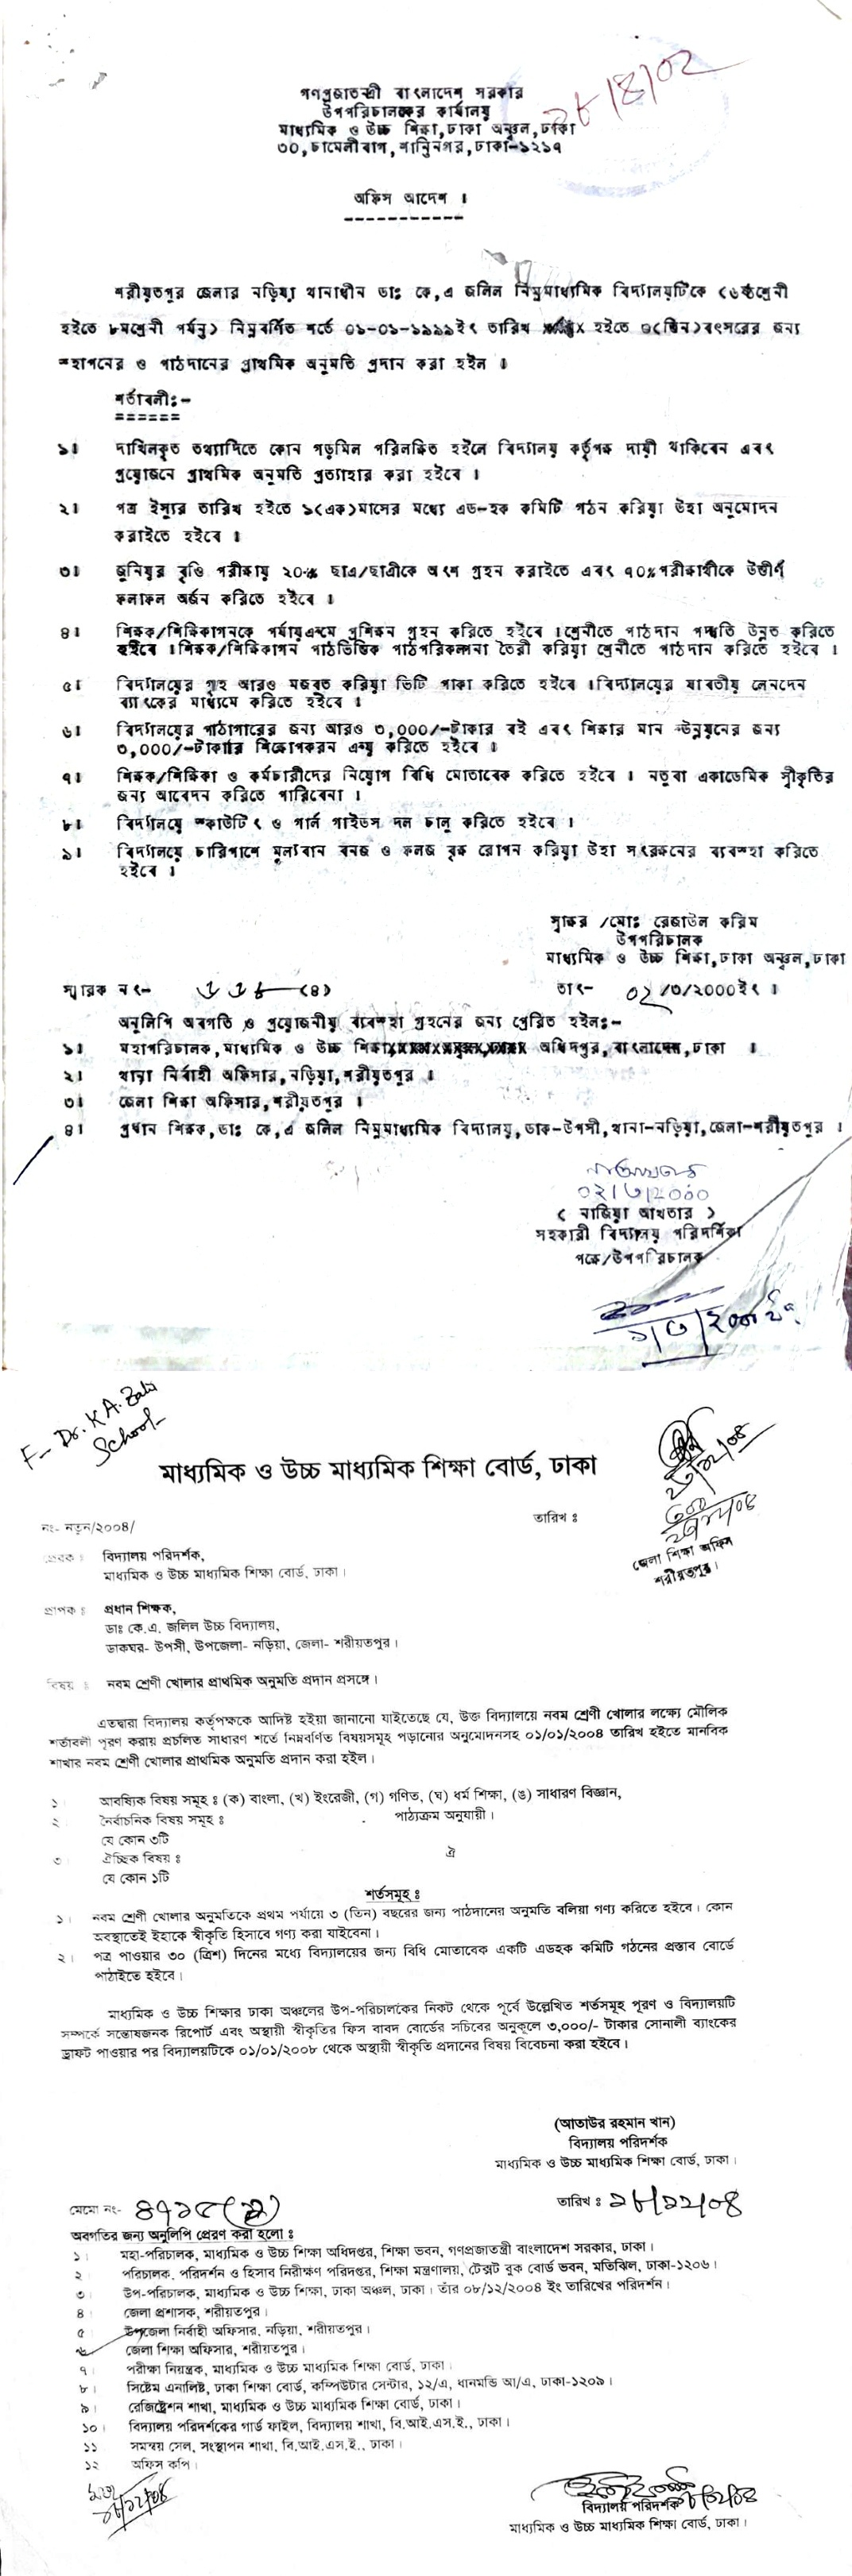 গণপ্রজাতন্ত্রী বাংলাদেশ সরকার
উপপরিচালকের কার্যালয়
মাধ্যমিক ও উচ্চ শিক্ষা,ঢাকা অঞ্চল,ঢাকা
৩০,চামেলীবাগ,শান্তিনগর,ঢাকা-১২১৭
অফিস আদেশ ।
শরীয়তপুর জেলার নড়িয়া থানাধীন ডাঃ কে,এ জলিল নিম্নমাধ্যমিক বিদ্যালয়টিকে (৬ষ্ঠশ্রেনী
হইতে ৮মশ্রেনী পর্যন্ত) নিম্নবর্ণিত শর্তে ০১-০১-১৯৯৯ইং তারিখ হইতে ৩(তিন)বৎসরের জন্য
স্হাপনের ও পাঠদানের প্রাথমিক অনুমতি প্রদান করা হইল ।
শর্তাবলী:-
১। দাখিলকৃত তথ্যাদিতে কোন গড়মিল পরিলক্ষিত হইলে বিদ্যালয় কর্তৃপক্ষ দায়ী থাকিবেন এবং
প্রয়োজনে প্রাথমিক অনুমতি প্রত্যাহার করা হইবে ।
২। পত্র ইস্যুর তারিখ হইতে ১(এক)মাসের মধ্যে এড-হক কমিটি গঠন করিয়া উহা অনুমোদন
করাইতে হইবে ।
৩। জুনিয়র বৃত্তি পরীক্ষায় ২০% ছাত্র/ছাত্রীকে অংশ গ্রহন করাইতে এবং ৭০%পরীক্ষার্থীকে উত্তীর্ণ
ফলাফল অর্জন করিতে হইবে ।
৪। শিক্ষক/শিক্ষিকাগনকে পর্যায়ক্রমে প্রশিক্ষন গ্রহন করিতে হইবে ।শ্রেনীতে পাঠদান পদ্ধতি উন্নত করিতে
হইবে ।শিক্ষক/শিক্ষিকাগন পাঠভিত্তিক পাঠপরিকল্পনা তৈরী করিয়া শ্রেনীতে পাঠদান করিতে হইবে ।
৫। বিদ্যালয়ের গৃহ আরও মজবুত করিয়া ভিটি পাকা করিতে হইবে ।বিদ্যালয়ের যাবতীয় লেনদেন
ব্যাংকের মাধ্যমে করিতে হইবে ।
৬। বিদ্যালয়ের পাঠাগারের জন্য আরও ৩,০০০/-টাকার বই এবং শিক্ষার মান উন্নয়নের জন্য
৩,০০০/-টাকার শিক্ষোপকরন ক্রয় করিতে হইবে ।
৭। শিক্ষক/শিক্ষিকা ও কর্মচারীদের নিয়োগ বিধি মোতাবেক করিতে হইবে । নতুবা একাডেমিক স্বীকৃতির
জন্য আবেদন করিতে পারিবেনা ।
৮। বিদ্যালয়ে স্কাউটিং ও গার্ল গাইডস দল চালু করিতে হইবে ।
৯। বিদ্যালয়ে চারিপাশে মূল্যবান বনজ ও ফলজ বৃক্ষ রোপন করিয়া উহা সংরক্ষনের ব্যবস্হা করিতে
হইবে ।
স্বাক্ষর /মোঃ রেজাউল করিম
উপপরিচালক
মাধ্যমিক ও উচ্চ শিক্ষা,ঢাকা অঞ্চল,ঢাকা
স্মারক নং- (৪) তাং- ০২/৩/২০০০ইং ।
অনুলিপি অবগতি ও প্রয়োজনীয় ব্যবস্হা গ্রহনের জন্য প্রেরিত হইল:-
১। মহাপরিচালক,মাধ্যমিক ও উচ্চ শিক্ষা অধিদপ্তর,বাংলাদেশ,ঢাকা ।
২। থানা নির্বাহী অফিসার,নড়িয়া,শরীয়তপুর ।
৩। জেলা শিক্ষা অফিসার,শরীয়তপুর ।
৪। প্রধান শিক্ষক,ডাঃ কে,এ জলিল নিম্নমাধ্যমিক বিদ্যালয়,ডাক-উপসী,থানা-নড়িয়া,জেলা-শরীয়তপুর ।
০২/৩/২০০০
( নাজিয়া আখতার )
সহকারী বিদ্যালয় পরিদর্শিকা
পক্ষে/উপপরিচালক
F- Dr. K A. Zalil
School-
মাধ্যমিক ও উচ্চ মাধ্যমিক শিক্ষা বোর্ড, ঢাকা
নং- নতুন/২০০৪/ তারিখ ঃ
জেলা শিক্ষা অফিস
শরীয়তপুর।
প্রেরক ঃ বিদ্যালয় পরিদর্শক,
মাধ্যমিক ও উচ্চ মাধ্যমিক শিক্ষা বোর্ড, ঢাকা।
প্রাপক ঃ প্রধান শিক্ষক,
ডাঃ কে.এ. জলিল উচ্চ বিদ্যালয়,
ডাকঘর- উপসী, উপজেলা- নড়িয়া, জেলা- শরীয়তপুর।
বিষয় ঃ নবম শ্রেণী খোলার প্রাথমিক অনুমতি প্রদান প্রসঙ্গে।
এতদ্বারা বিদ্যালয় কর্তৃপক্ষকে আদিষ্ট হইয়া জানানো যাইতেছে যে, উক্ত বিদ্যালয়ে নবম শ্রেণী খোলার লক্ষ্যে মৌলিক
শর্তাবলী পূরণ করায় প্রচলিত সাধারণ শর্তে নিম্নবর্ণিত বিষয়সমূহ পড়ানোর অনুমোদনসহ ০১/০১/২০০৪ তারিখ হইতে মানবিক
শাখার নবম শ্রেণী খোলার প্রাথমিক অনুমতি প্রদান করা হইল।
১ আবষ্যিক বিষয় সমূহ ঃ (ক) বাংলা, (খ) ইংরেজী, (গ) গণিত, (ঘ) ধর্ম শিক্ষা, (ঙ) সাধারণ বিজ্ঞান,
২ নৈর্বাচনিক বিষয় সমূহ ঃ পাঠ্যক্রম অনুযায়ী।
যে কোন ৩টি
৩ ঐচ্ছিক বিষয় ঃ ঐ
যে কোন ১টি
শর্তসমূহ ঃ
১। নবম শ্রেণী খোলার অনুমতিকে প্রথম পর্যায়ে ৩ (তিন) বছরের জন্য পাঠদানের অনুমতি বলিয়া গণ্য করিতে হইবে। কোন
অবস্থাতেই ইহাকে স্বীকৃতি হিসাবে গণ্য করা যাইবেনা।
২। পত্র পাওয়ার ৩০ (ত্রিশ) দিনের মধ্যে বিদ্যালয়ের জন্য বিধি মোতাবেক একটি এডহক কমিটি গঠনের প্রস্তাব বোর্ডে
পাঠাইতে হইবে।
মাধ্যমিক ও উচ্চ শিক্ষার ঢাকা অঞ্চলের উপ-পরিচালকের নিকট থেকে পূর্বে উল্লেখিত শর্তসমূহ পূরণ ও বিদ্যালয়টি
সম্পর্কে সন্তোষজনক রিপোর্ট এবং অস্থায়ী স্বীকৃতির ফিস বাবদ বোর্ডের সচিবের অনুকূলে ৩,০০০/- টাকার সোনালী ব্যাংকের
ড্রাফট পাওয়ার পর বিদ্যালয়টিকে ০১/০১/২০০৮ থেকে অস্থায়ী স্বীকৃতি প্রদানের বিষয় বিবেচনা করা হইবে।
(আতাউর রহমান খান)
বিদ্যালয় পরিদর্শক
মাধ্যমিক ও উচ্চ মাধ্যমিক শিক্ষা বোর্ড, ঢাকা।
মেমো নং- তারিখ ঃ ২৮/১২/০৪
অবগতির জন্য অনুলিপি প্রেরণ করা হলো ঃ
১। মহা-পরিচালক, মাধ্যমিক ও উচ্চ শিক্ষা অধিদপ্তর, শিক্ষা ভবন, গণপ্রজাতন্ত্রী বাংলাদেশ সরকার, ঢাকা।
২ পরিচালক, পরিদর্শন ও হিসাব নিরীক্ষণ পরিদপ্তর, শিক্ষা মন্ত্রণালয়, টেক্সট বুক বোর্ড ভবন, মতিঝিল, ঢাকা-১২০৬।
৩ উপ-পরিচালক, মাধ্যমিক ও উচ্চ শিক্ষা, ঢাকা অঞ্চল, ঢাকা। তাঁর ০৮/১২/২০০৪ ইং তারিখের পরিদর্শন।
৪ জেলা প্রশাসক, শরীয়তপুর।
৫ উপজেলা নির্বাহী অফিসার, নড়িয়া, শরীয়তপুর।
৬ জেলা শিক্ষা অফিসার, শরীয়তপুর।
৭ পরীক্ষা নিয়ন্ত্রক, মাধ্যমিক ও উচ্চ মাধ্যমিক শিক্ষা বোর্ড, ঢাকা।
৮। সিষ্টেম এনালিষ্ট, ঢাকা শিক্ষা বোর্ড, কম্পিউটার সেন্টার, ১২/এ, ধানমন্ডি আ/এ, ঢাকা-১২০৯।
৯। রেজিষ্ট্রেশন শাখা, মাধ্যমিক ও উচ্চ মাধ্যমিক শিক্ষা বোর্ড, ঢাকা।
১০। বিদ্যালয় পরিদর্শকের গার্ড ফাইল, বিদ্যালয় শাখা, বি.আই.এস.ই., ঢাকা।
১১ সমন্বয় সেল, সংস্থাপন শাখা, বি.আই.এস.ই., ঢাকা।
১২ অফিস কপি।
বিদ্যালয় পরিদর্শক
মাধ্যমিক ও উচ্চ মাধ্যমিক শিক্ষা বোর্ড, ঢাকা।